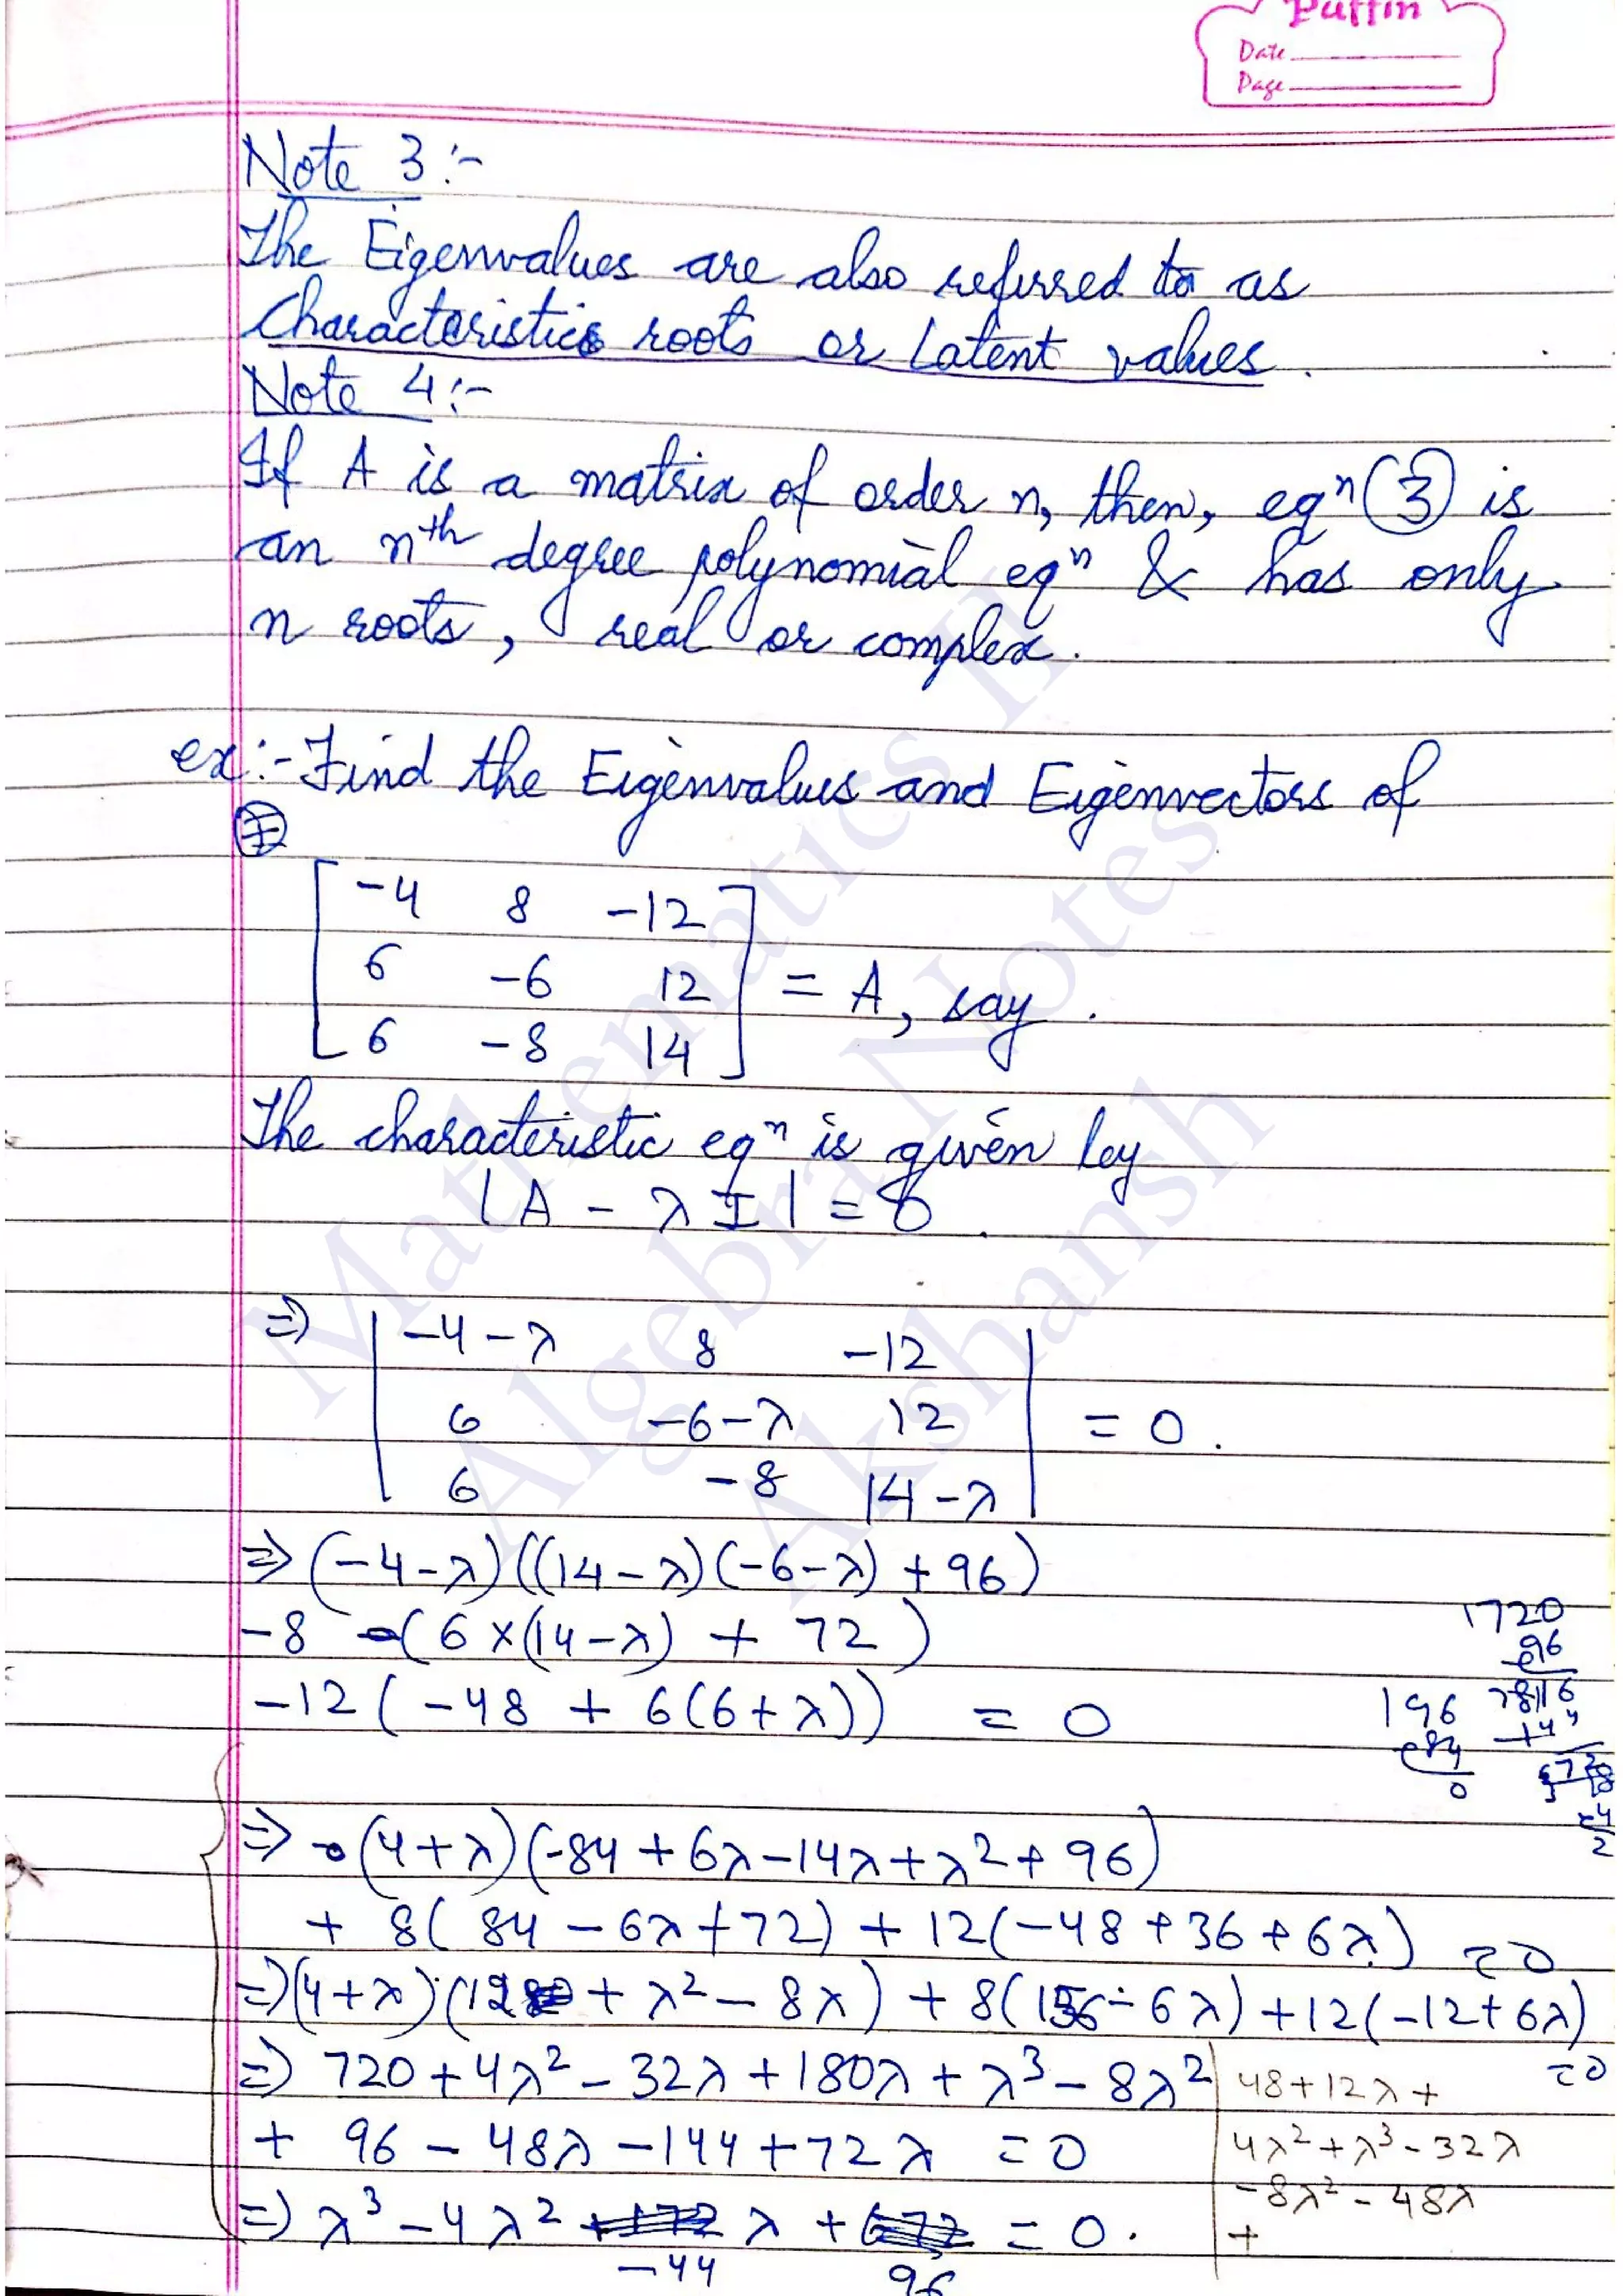 Puffin
Date
Page
Note 3:-
The Eigenvalues are also referred to as
Characteristics roots or Latent values.
Note 4:-
If A is a matrix of order n, then, eqⁿ (3) is
an nᵗʰ degree polynomial eqⁿ & has only
n roots, real or complex.
ex:- Find the Eigenvalues and Eigenvectors of
[ -4 8 -12
6 -6 12 ] = A, say.
6 -8 14
The characteristic eqⁿ is given by
|A - λI| = 0
⇒ | -4-λ 8 -12 |
6 -6-λ 12 = 0.
6 -8 14-λ
⇒ (-4-λ)((14-λ)(-6-λ) + 96)
-8 (6×(14-λ) + 72)
-12 (-48 + 6(6+λ)) = 0
720
96
816
196
84
0
⇒ (4+λ)(-84+6λ-14λ+λ²+96)
+ 8(84-6λ+72) + 12(-48+36+6λ) = 0
⇒ (4+λ)(12+λ²-8λ) + 8(156-6λ) + 12(-12+6λ)
=0
⇒ 720+4λ²-32λ+180λ+λ³-8λ²
+ 96 - 48λ - 144 + 72λ = 0
48+12λ+
4λ²+λ³-32λ
-8λ²-48λ
+
⇒ λ³-4λ² λ + = 0.
-44 96
Mathematics II
Algebra Notes
Akshansh